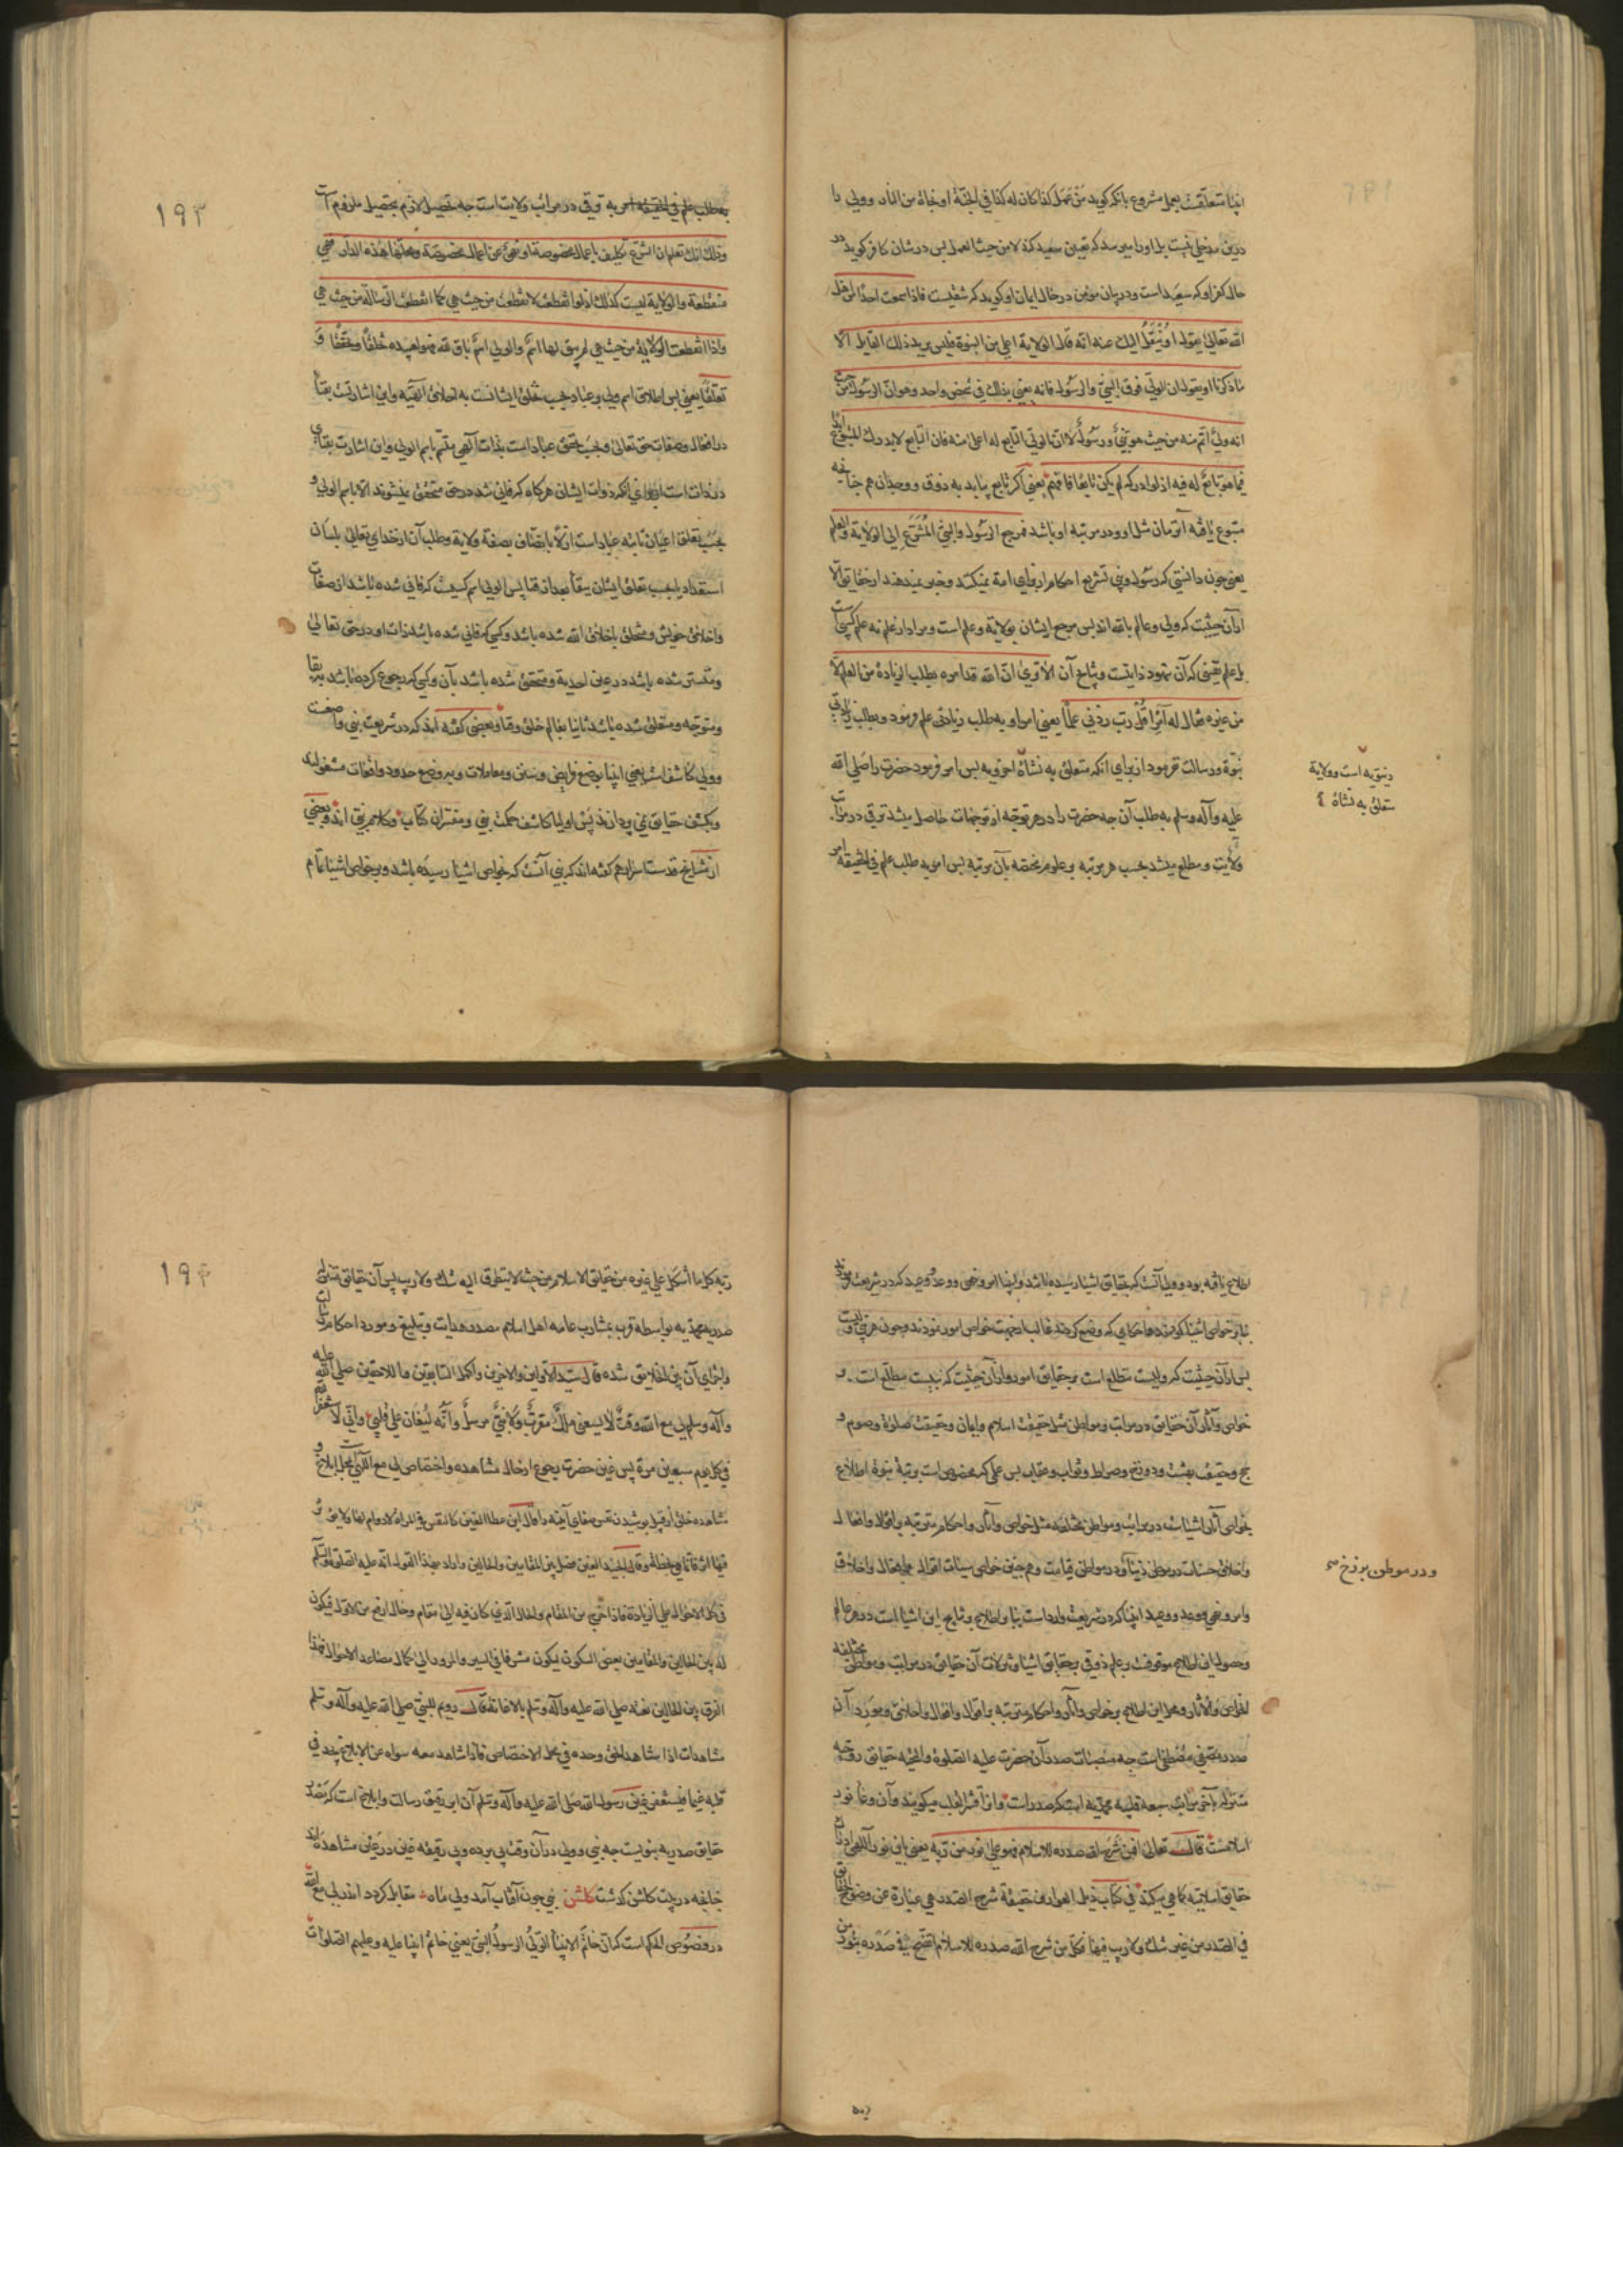 انبیا متعلقست بعمل مشروع بانکه گوید من عمل کذا کان له کذا فی الجنة او نجاة من النار و ولی را
درین مدخلی نیست بل او را میرسد که تعیین سعید کند لا من حیث العمل پس در شان کافر گوید در
حال کفر او که سعید است و در بیان مؤمن در حال ایمان او گوید که شقیست فاذا سمعت احدا من اهل
الله تعالی یقول او ینقل الیک عنه انه قال الولایة اعلی من النبوة فلیس یرید ذلک القایل الا
ما ذکرنا او یقول ان الولی فوق النبی والرسول فانه یعنی بذلک فی شخص واحد وهو ان الرسول من حیث
انه ولی اتم منه من حیث هو نبی ورسول لا ان الولی التابع له اعلی منه فان التابع لا یدرک المتبوع ابدا
فیما هو تابع له فیه اذ لو ادرکه لم یکن تابعا فافهم یعنی اگر تابع بیابد به ذوق و وجدان هم چنانچه
متبوع یافته آن زمان مثل او و در مرتبه او باشد فمرجع الرسول والنبی المشرع الی الولایة والعلم
یعنی چون دانستی که رسول و نبی تشریع احکام از برای امة نمیکنند و خبر نمیدهند از حقایق الا
از آن حیثیت که ولی و عالم بالله اند پس مرجع ایشان بولایة و علم است و مراد از علم نه علم کسبی است
بل علم یقینی که آن شهود ذاتیست و نتایج آن الا تری ان الله قد امره بطلب الزیادة من العلم لا
من غیره فقال له آمرا قل رب زدنی علما یعنی امر او به طلب زیادتی علم فرمود و بطلب زیادتی
نبوة و رسالت نفرمود از برای انکه متعلق به نشاة اخرویه پس امر فرمود حضرت را صلی الله
علیه وآله وسلم به طلب آن چه حضرت را در هر توجه از توجهات حاصل میشد ترقی در مراتب
ولایت و مطلع میشد بحسب هر مرتبه بر علوم مختصه بآن مرتبه پس امر به طلب علم فی الحقیقه امر
دنیویه است و ولایة
متعلق به نشاة
۱۹۳
به طلب علم فی الحقیقه امر به ترقی در مراتب ولایت است چه تحصیل لازم بتحصیل ملزوم است
وذلک انک تعلم ان الشرع تکلیف باعمال مخصوصة او نهی عن اعمال مخصوصة ومحلها هذه الدار فهی
منقطعة والولایة لیست کذلک اذ لو انقطعت لانقطعت من حیث هی کما انقطعت الرسالة من حیث هی
واذا انقطعت الولایة من حیث هی لم یبق لها اسم والولی اسم باق لله فهو لعبیده تخلقا وتحققا و
تعلقا یعنی پس اطلاق اسم ولی بر عباد بحسب تخلق ایشانست به اخلاق الهیه و این اشارتست بفنا
در افعال و صفات حق تعالی و بحسب تحقق عباد است بذات الهی متسم باسم الولی و این اشارت بفنای
در ذات است
بحسب تعلق اعیان ثابته عباد است ازلا باتصاف بصفة ولایة و طلب آن از خدای تعالی بلسان
استعداد یا بحسب تعلق ایشان ببقا بعد از فنا پس الولی اسم کسیست که فانی شده باشد از صفات
واخلاق خویش و متخلق باخلاق الله شده باشد و کسی که فانی شده باشد ذات او در حق تعالی
و مستتر شده باشد در عین احدیة و متحقق شده باشد بآن و کسی که رجوع کرده باشد ببقا
و متوجه و متعلق شده باشد ثانیا بعالم خلق و بقا و بعضی گفته اند که در شریعت نبی واضعست
و ولی کاشف است یعنی انبیا بوضع فرایض و سنن و معاملات و بر وضع حدود واقعات مشغولند
و بکشف حقایق نمی پردازند پس اولیا کاشف حکمت نبی و مفسران کتاب و کلام نبی اند و بعضی
از مشایخ قدست اسرارهم گفته اند که نبی آنست که بخواص اشیا رسیده باشد و بر خواص اشیا تمام
اطلاع یافته بود و ولی آنست که بحقایق اشیا رسیده باشد و انبیا امر و نهی و وعد و وعید که در شریعت فرمودند
بنابر خواص اشیا فرمودند و احکامی که وضع کردند غالبا از جهت خواص امور نمودند و چون هر نبی ولیست
پس از آن حیثیت که ولیست مطلع است بر حقایق امور و از آن حیثیت که نبیست مطلع است بر
خواص و آثار آن حقایق در مراتب و مواطن مثل حقیقت اسلام و ایمان و حقیقت صلوة و صوم و
حج و حقیقت بهشت و دوزخ و صراط و ثواب و عقاب پس علمی که مخصوص است بمرتبه نبوة اطلاع
بخواص آثار اشیاست در مراتب و مواطن مختلفه مثل خواص و آثار و احکام مترتبه بر اقوال و افعال
و اخلاق حسنات در موطن دنیا و در مواطن قیامت و هم چنین خواص سیئات اقوال و افعال و اخلاق
و امر و نهی و وعد و وعید انبیا که در شریعت وارد است بنا بر اطلاع بر نتایج این اشیا است در هر عالم
و حصول این اطلاع موقوفست بر علم ذوقی بحقایق اشیا و تنزلات آن حقایق در مراتب و مواطن مختلفه
الخواص والآثار و محل این اطلاع بر خواص و آثار و احکام مترتبه بر اقوال و افعال و اخلاق و مورد آن
صدر مصطفی است چه منصبات صدر آن حضرت علیه الصلوة والتحیه حقایق روحیه
متنزله باخر مراتب سبعه قلبیه محمدیه است که صدر است و از آن قشر القلب میگویند و آن وعاء نور
اسلامست قال الله تعالی افمن شرح الله صدره للاسلام فهو علی نور من ربه یعنی باین نور الهی ادراک
حقایق اسلامیه کما هی میکند فی کتاب ذیل العوارف حقیقة شرح الصدر هی عبارة عن وضوح الحقایق
فی الصدر من غیر شک ولا ریب فیها فکل من شرح الله صدره للاسلام اتضح فی صدره بنور من
و در موطن برزخ صح
۱۹۴
ربه کل ما اشکل علی غیره من حقایق الاسلام من حیث لا یتطرق الیه شک ولا ریب پس آن حقایق
صدریه محمدیه بواسطه قرب بمشارب عامه اهل اسلام مصدر هدایت و تبلیغ و مورد احکام رسالت
و انزال آن بین الخلایق شده قال سید الاولین والاخرین واکمل السابقین واللاحقین صلی الله علیه
وآله وسلم لی مع الله وقت لا یسعنی ملک مقرب ولا نبی مرسل وانه لیغان علی قلبی وانی لاستغفر الله
فی کل یوم سبعین مرة پس غین حضرت رجوع از حال مشاهده و اختصاص لی مع الله است بمحل ابلاغ و
مشاهده خلق از قبیل پوشیدن نفس صفای آینه را قال ابن عطا الغین کالنفس فی المراة لا دوام لها ولا یؤثر
فیها اثرا قائما فی لحظة وقال الجنید الغین فصل بین المقامین والحالین واراد بهذا القول انه علیه الصلوة والسلم
فی کل الاحوال علی الزیادة فاذا خرج من المقام والحال الذی کان فیه الی مقام وحال ارفع من الاول فیکون
له بین الحالین والمقامین بعض السکون فیکون مشرفا فی السیر والمرور الی کمال مصاعد الاحوال فهذا
الفرق بین الحالین نعته صلی الله علیه وآله وسلم بالاغانة فقال رویم للنبی صلی الله علیه وآله وسلم
مشاهدات اذا شاهد الحق وحده فی محل الاختصاص فاذا شاهد معه سواه عن الابلاغ یجد فی
قلبه غیما فیستغفر غین رسول الله صلی الله علیه وآله وسلم آن ابر رقیق رسالت و ابلاغ است که بصدر
حقایق صدریه نبویست چه نبی و ولی در آن وقت پی برده و بی رقیقه غین در عین مشاهده اند
چنانچه در بیت گلشن گذشت گلشن نبی چون آفتاب آمد ولی ماه مقابل گردد اندر لی مع الله
در فصوص الحکم است که ان خاتم الانبیا الولی الرسول النبی یعنی خاتم انبیا علیه و علیهم الصلوات